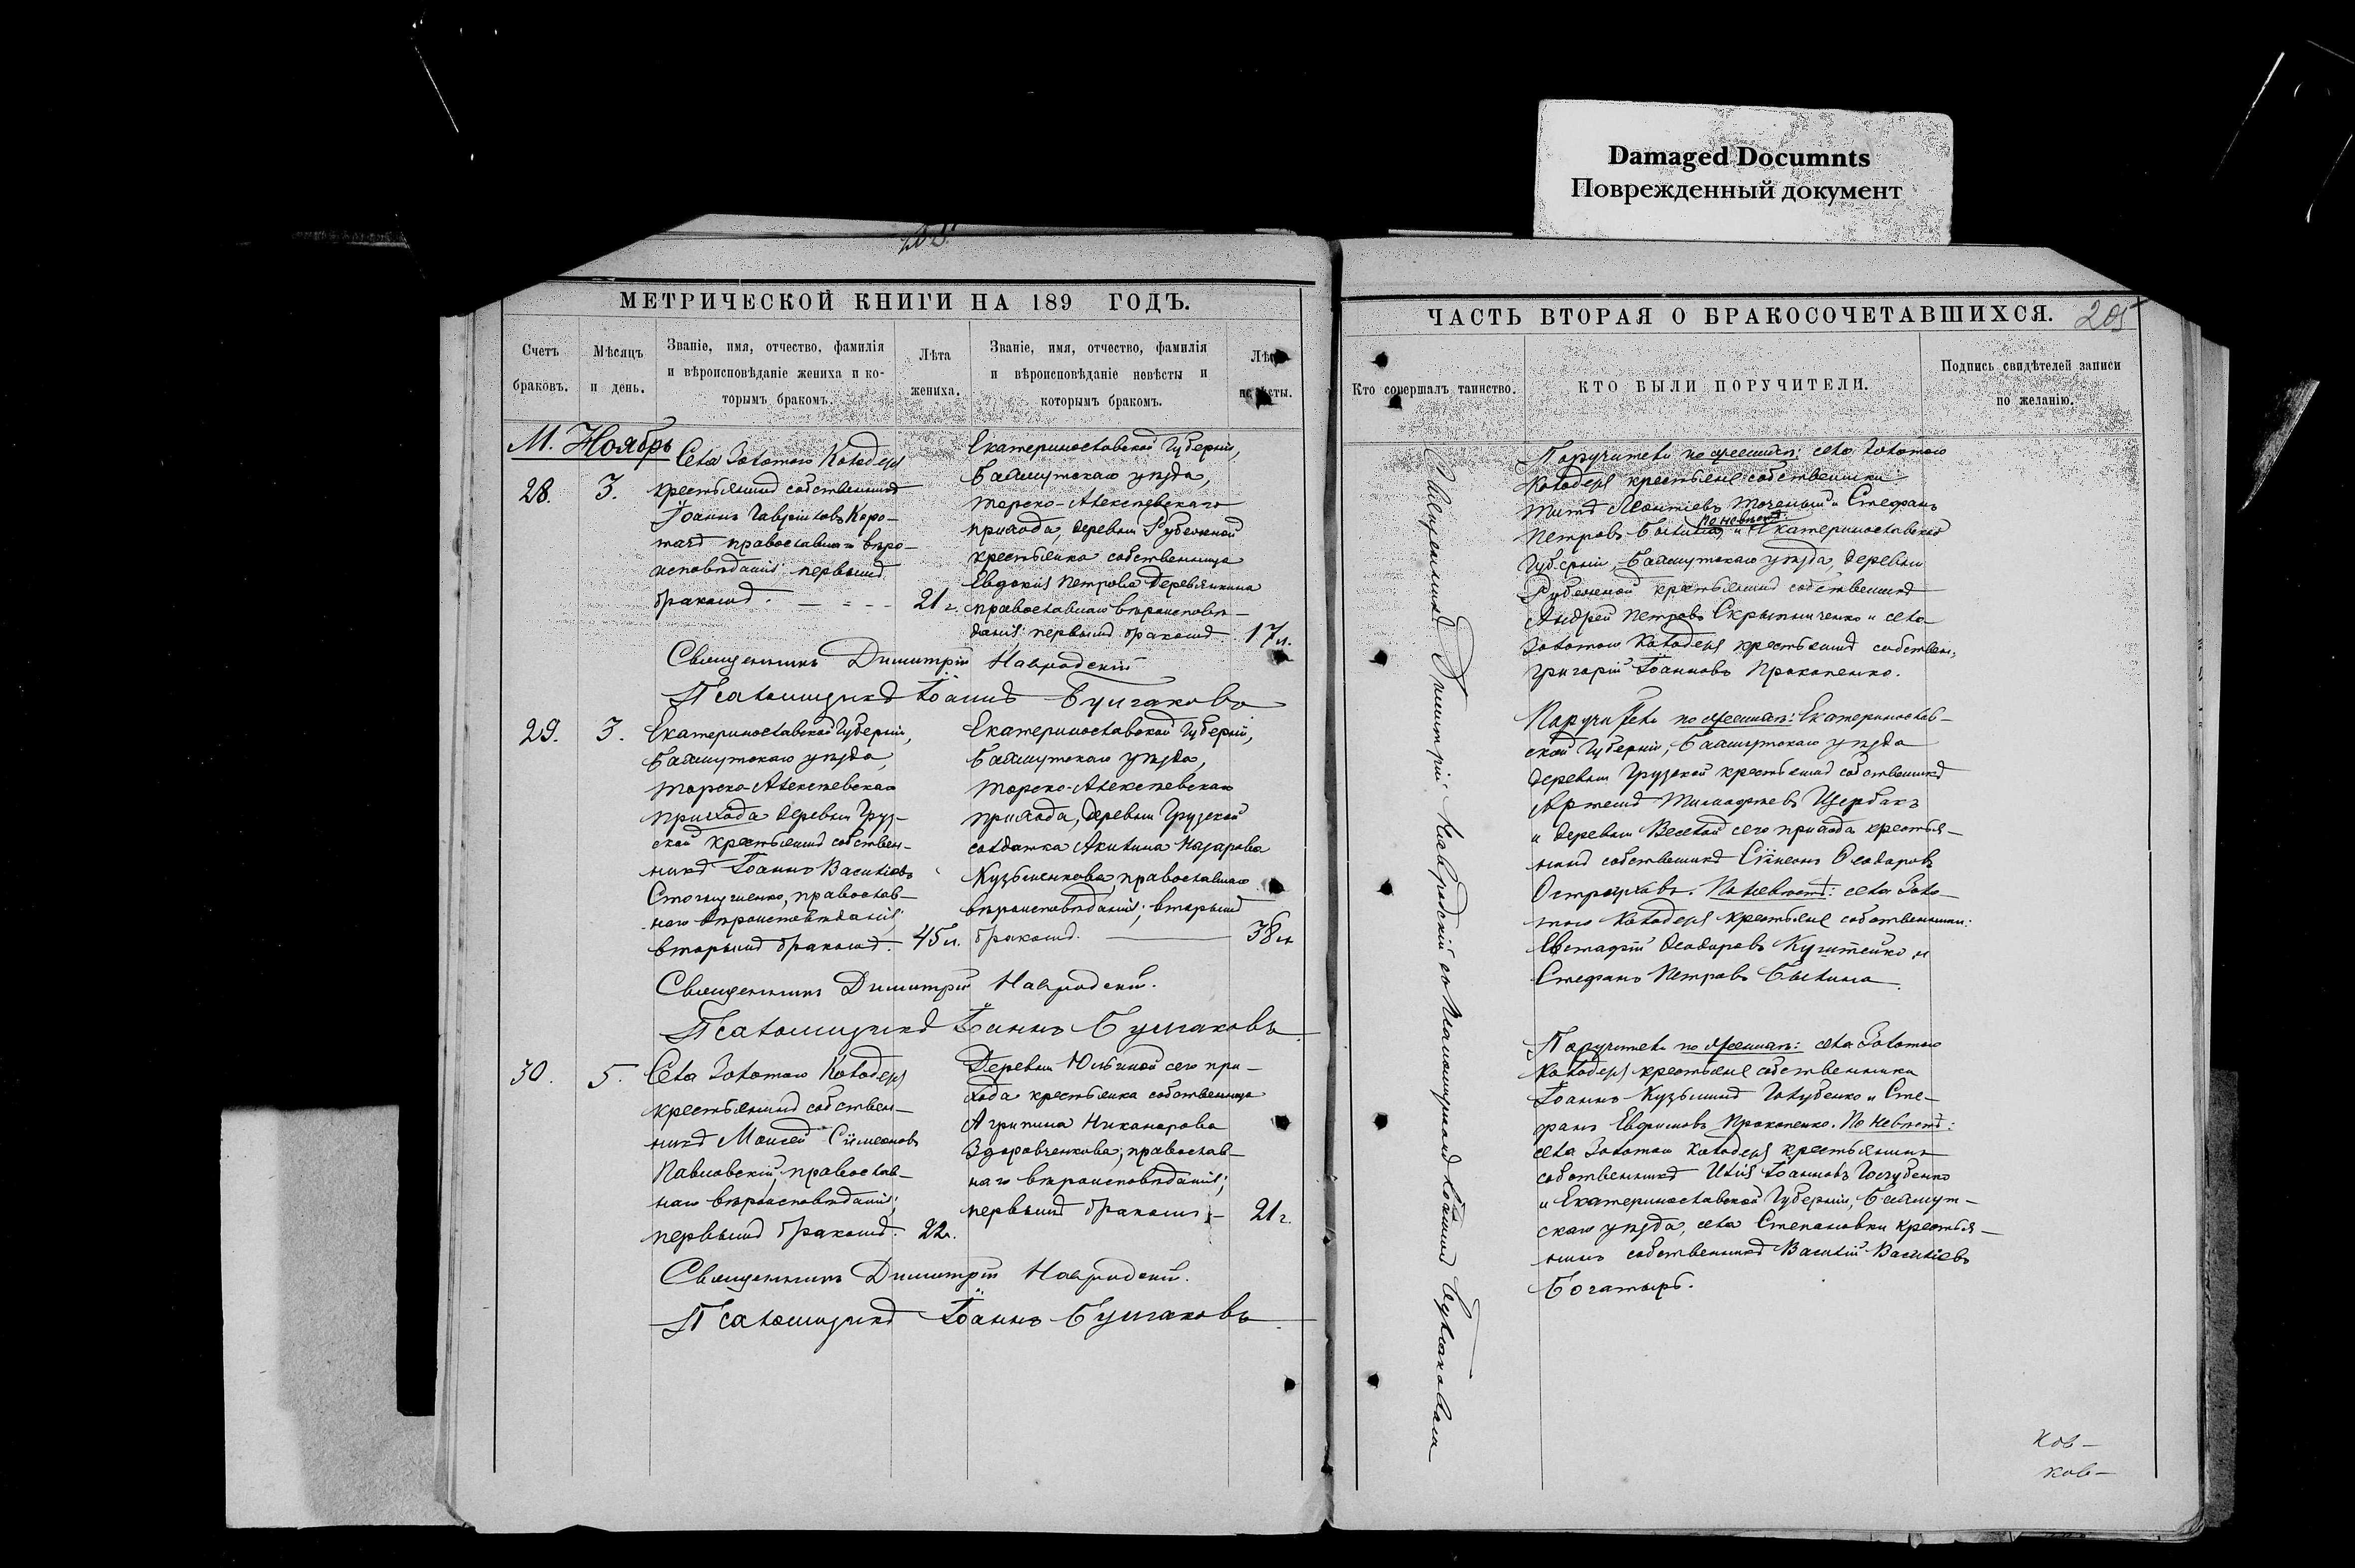 Damaged Documnts
Поврежденный документ
МЕТРИЧЕСКОЙ КНИГИ НА 189 ГОДЪ.
Счетъ браковъ.
Мѣсяцъ и день.
Званіе, имя, отчество, фамилія
и вѣроисповѣданіе жениха и ко-
торымъ бракомъ.
Лѣта
жениха.
Званіе, имя, отчество, фамилія
и вѣроисповѣданіе невѣсты и
которымъ бракомъ.
М. Ноябрь
28.
3.
Села Золотого Колодезя
крестьянинъ собственникъ
Іоаннъ Гавріиловъ Коро-
тачъ православнаго вѣро-
исповѣданія; первымъ
бракомъ.
21 г.
Екатеринославской Губерніи,
Бахмутскаго уѣзда,
Торско-Алексѣевскаго
прихода, деревни Рубежной
крестьянка собственница
Евдокія Петрова Деревянкина
православнаго вѣроисповѣ-
данія; первымъ бракомъ
17 л.
Священникъ Димитрій Навродскій
Псаломщикъ Іоаннъ Булгаковъ
29.
3.
Екатеринославской Губерніи,
Бахмутскаго уѣзда,
Торско-Алексѣевскаго
прихода деревни Груз-
ской крестьянинъ собствен-
никъ Іоаннъ Василіевъ
православ-
наго вѣроисповѣданія;
вторымъ бракомъ.
45 л.
Екатеринославской Губерніи,
Бахмутскаго уѣзда,
Торско-Алексѣевскаго
прихода, деревни Грузской
солдатка Акилина Назарова
Кузьменкова, православнаго
вѣроисповѣданія; вторымъ
бракомъ.
38 л.
Священникъ Димитрій Навродскій.
Псаломщикъ Іоаннъ Булгаковъ
30.
5.
Села Золотого Колодезя
крестьянинъ собствен-
никъ Моисей Сімеоновъ
Павловскій; православ-
наго вѣроисповѣданія;
первымъ бракомъ.
22 г.
Деревни Юльиной сего при-
хода крестьянка собственница
Агрипина Никанорова
Здоровченкова; православ-
наго вѣроисповѣданія;
первымъ бракомъ
21 г.
Священникъ Димитрій Навродскій.
Псаломщикъ Іоаннъ Булгаковъ
ЧАСТЬ ВТОРАЯ О БРАКОСОЧЕТАВШИХСЯ.
205
Кто совершалъ таинство.
КТО БЫЛИ ПОРУЧИТЕЛИ.
Подпись свидѣтелей записи
по желанію.
Священникъ Димитрій Навродскій съ псаломщикомъ Іоанномъ Булгаковымъ
Поручители по женихѣ: села Золотого
Колодезя крестьяне собственники
Титъ Леонтіевъ и Стефанъ
по невѣстѣ:
Петровъ Былина и Екатеринославской
Губерніи, Бахмутскаго уѣзда, деревни
Рубежной крестьянинъ собственникъ
Андрей Петровъ Скрыпниченко и села
Золотого Колодезя крестьянинъ собствен.
Григорій Іоанновъ Прокопенко.
Поручители по женихѣ: Екатеринослав-
ской Губерніи, Бахмутскаго уѣзда
деревни Грузской крестьянинъ собственникъ
Артемъ Тимофеевъ Щербакъ
и деревни Веселой сего прихода крестья-
нинъ собственникъ Сімеонъ Ѳеодоровъ
По невѣстѣ: села Золо-
того Колодезя крестьяне собственники:
Евстафій Ѳеодоровъ и
Стефанъ Петровъ Былина.
Поручители по женихѣ: села Золотого
Колодезя крестьяне собственники
Іоаннъ Кузьминъ Голубенко и Сте-
фанъ Ефимовъ Прокопенко. По невѣстѣ:
села Золотого Колодезя крестьянинъ
собственникъ Илія Іоанновъ Голубенко
и Екатеринославской Губерніи, Бахмут-
скаго уѣзда, села Степановки крестья-
нинъ собственникъ Василій Василіевъ
Богатырь.
ков-
ков-